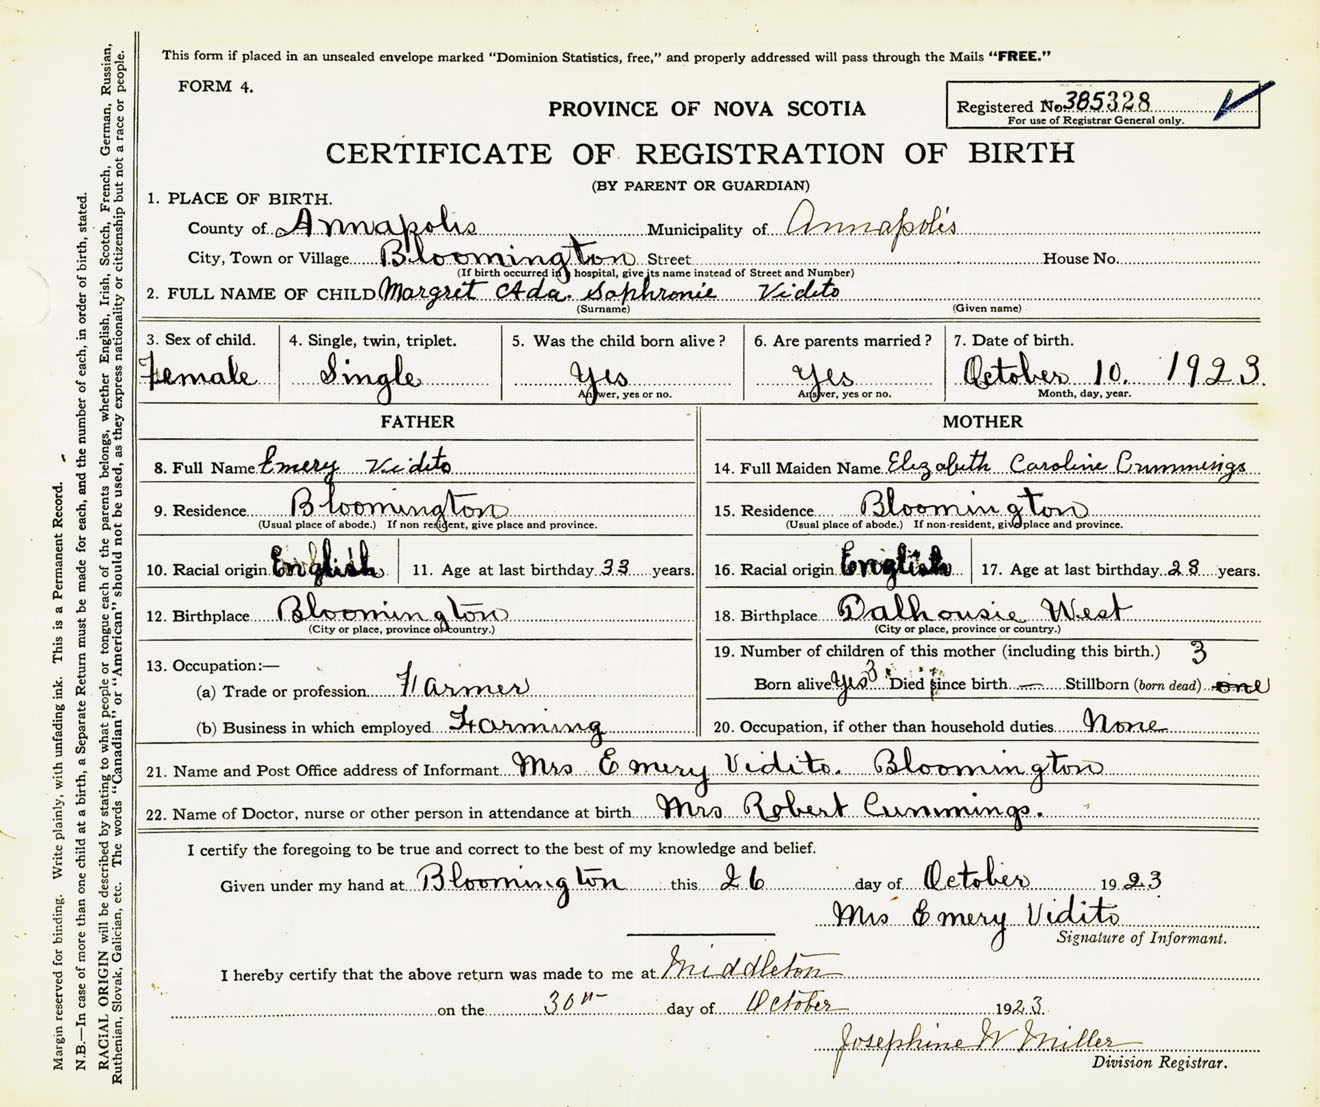 This form if placed in an unsealed envelope marked "Dominion Statistics, free," and properly addressed will pass through the Mails "FREE."
FORM 4.
Registered No. 385328
For use of Registrar General only.
PROVINCE OF NOVA SCOTIA
CERTIFICATE OF REGISTRATION OF BIRTH
(BY PARENT OR GUARDIAN)
1. PLACE OF BIRTH.
County of Annapolis Municipality of Annapolis
City, Town or Village Bloomington Street House No.
(If birth occurred in hospital, give its name instead of Street and Number)
2. FULL NAME OF CHILD Margret Ada. Saphronie Vidito
(Surname) (Given name)
3. Sex of child. 4. Single, twin, triplet. 5. Was the child born alive? 6. Are parents married? 7. Date of birth.
Female Single Yes Yes October 10. 1923.
Answer, yes or no. Answer, yes or no. Month, day, year.
FATHER
8. Full Name Emery Vidito
9. Residence Bloomington
(Usual place of abode.) If non resident, give place and province.
10. Racial origin English 11. Age at last birthday 33 years.
12. Birthplace Bloomington
(City or place, province or country.)
13. Occupation:—
(a) Trade or profession Farmer
(b) Business in which employed Farming
MOTHER
14. Full Maiden Name Elizabeth Caroline Cummings
15. Residence Bloomington
(Usual place of abode.) If non-resident, give place and province.
16. Racial origin English 17. Age at last birthday 28 years.
18. Birthplace Dalhousie West
(City or place, province or country.)
19. Number of children of this mother (including this birth.) 3
Born alive Yes 3 Died since birth — Stillborn (born dead) one
20. Occupation, if other than household duties None
21. Name and Post Office address of Informant Mrs Emery Vidito. Bloomington
22. Name of Doctor, nurse or other person in attendance at birth Mrs Robert Cummings.
I certify the foregoing to be true and correct to the best of my knowledge and belief.
Given under my hand at Bloomington this 26 day of October 1923
Mrs Emery Vidito
Signature of Informant.
I hereby certify that the above return was made to me at Middleton
on the 30th day of October 1923.
Josephine W Miller
Division Registrar.
Margin reserved for binding. Write plainly, with unfading ink. This is a Permanent Record.
N.B.—In case of more than one child at a birth, a Separate Return must be made for each, and the number of each, in order of birth, stated.
RACIAL ORIGIN will be described by stating to what people or tongue each of the parents belongs, whether English, Irish, Scotch, French, German, Russian,
Ruthenian, Slovak, Galician, etc. The words "Canadian" or "American" should not be used, as they express nationality or citizenship but not a race or people.